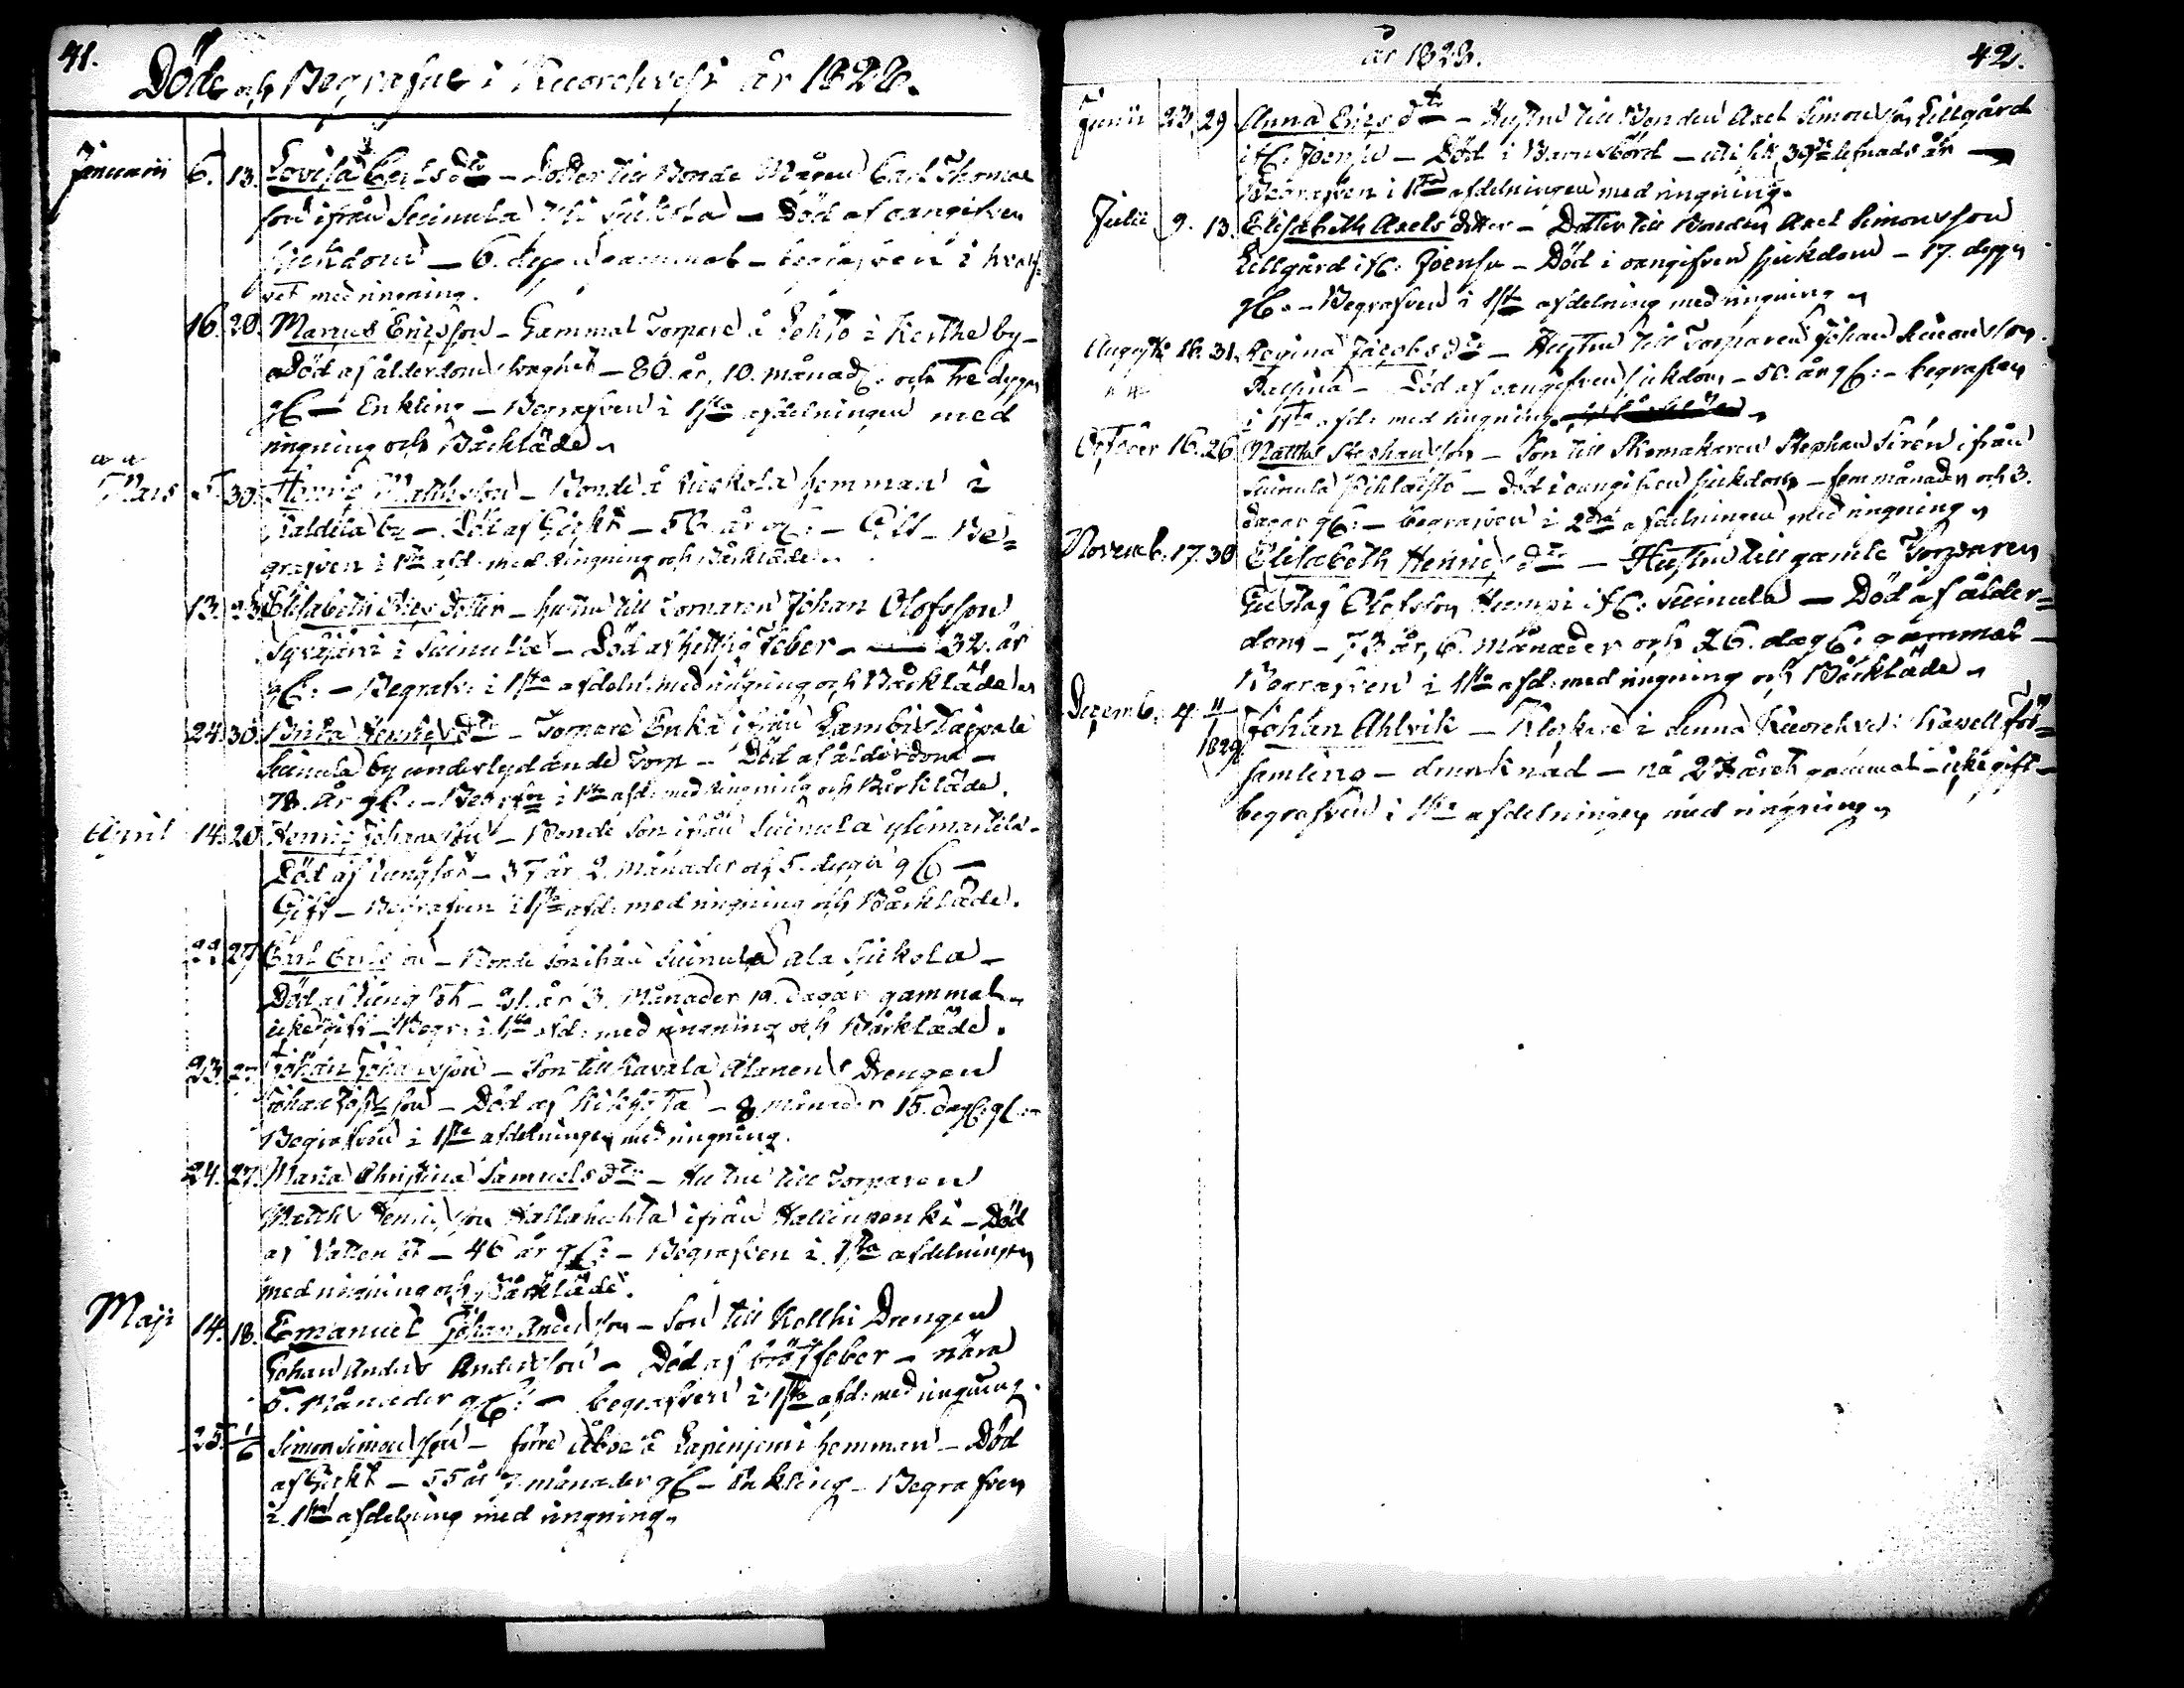 41.
Döde och Begrafne i Kuorehvesi år 1828.
Januarii 6. 13. Lovisa Carlsdtr – Dotter till Bonde Mågen Carl Thomas
son ifrån Suinula Yli – Död af oangifven
Sjukdom – 6. dygn gammal – begrafven i hvalf-
vet med ringning.
16. 20. Marcus Ericsson – Gammal Torpare å Pohto i Kerthe by –
Död af ålderdoms svaghet – 80. år, 10. månad: och Tre dygn
gl – Enkling – Begrafven i 1sta afdelningen med
ringning och Bårkläde
Mars 5 30. Henric Mattsson – Bonde å hemman i
by – Död af Gickt – 56. år gl: – Gift – Be=
grafven i 1sta afd: med Ringning och Bårkläde.
13. 23. Elisabeth Ericsdotter – hustru till Torparen Johan Olofsson
i Suinula – Död af hettsig feber – 32. år
gl: – Begrafv: i 1sta afdeln: med ringning och Bårkläde
24. 30. Henricsdtr – Torpare Enka ifrån Taipale
Suinula by underlydande Torp – Död af ålderdom –
78. år gl: – Begrfn i 1sta afd: med Ringning och Bårkläde.
April 14. 20. Henric Johansson – Bonde Son ifrån Suinula Ylimartila –
Död af Lungsot – 37 år 2. månader och 5. dygn gl –
Gift – Begrafven i 1sta afd: med ringning och Bårkläde.
22. 27. Carl Carlsson – Bonde Son ifrån Suinula Ala –
Död af Lungsot – 21. år 3. Månader 19. dagar gammal
icke gift – Begr: i 1sta afd: med ringning och Bårkläde.
23. 27. Johan Johansson – Son till Havala Alanens Drengen
Johan – Död af Kikhosta – 8 månader 15. dag: gl:
Begrafven i 1sta afdelningen med ringning.
24. 27. Maria Christina Samuelsdtr – Hustru till Torparen
Matths Henricsson Hallahuhta ifrån Hallinpenki – Död
af Vattensot – 46 år gl: – Begrafven i 1sta afdelningen
med ringning och Bårkläde.
Maji 14. 18. Emanuel Johan Andersson – Son till Kolkki Drengen
Johan Anders Andersson – Död af bröstfeber – nära
5. Månader gl: – begrafven i 1sta afd: med ringning.
25. 1/6 Simon Simonsson – förre åboe å Lapinjemi hemman – Död
af Gickt – 55 år 7. månader gl – Enkling – Begrafven
i 1sta afdelning med ringning

år 1828.
42.
Junii 23. 29 Anna Ericsdtr – Hustru till Bonden Axel Simonsson Lillgård
i K: Joensu – Död i Barnsbörd – uti sitt 39de lefnads år –
Begrafven i 1sta afdelningen med ringning.
Julii 9. 13. Elisabeth Axelsdotter – Dotter till Bonden Axel Simonsson
Lillgård i K: Joensu – Död i oangifven sjukdom – 17. dygn
gl: – Begrafven i 1sta afdelning med ringning
Augusti 18. 31. Regina Jacobsdtr – Hustru till Torparen Johan Simonsson
– Död af oangifven sjukdom – 50. år gl: – begrafven
i 1sta afd: med ringning
October 16. 26 Matths Stephansson – Son till Skomakaren Stephan Sirén ifrån
Suinula Pihlaisto – död i oangifven sjukdom – fem månader och 3.
dagar gl: – begrafven i 2dra afdelningen med ringning
Novemb. 17. 30 Elisabeth Henricsdtr – Hustru till gamle Torparen
Gustaf Olofsson Kumpi i K: Suinula – Död af ålder=
dom – 73 år, 6. Månader och 26. dag: gammal –
Begrafven i 1sta afd: med ringning och Bårkläde
Decemb. 4. 11/1 1829. Johan Ahlvik – Klockare i denna Kuorehvesi Kapell För=
samling – drunknad – på 27 året gammal – icke gift –
begrafven i 1sta afdelningen med ringning